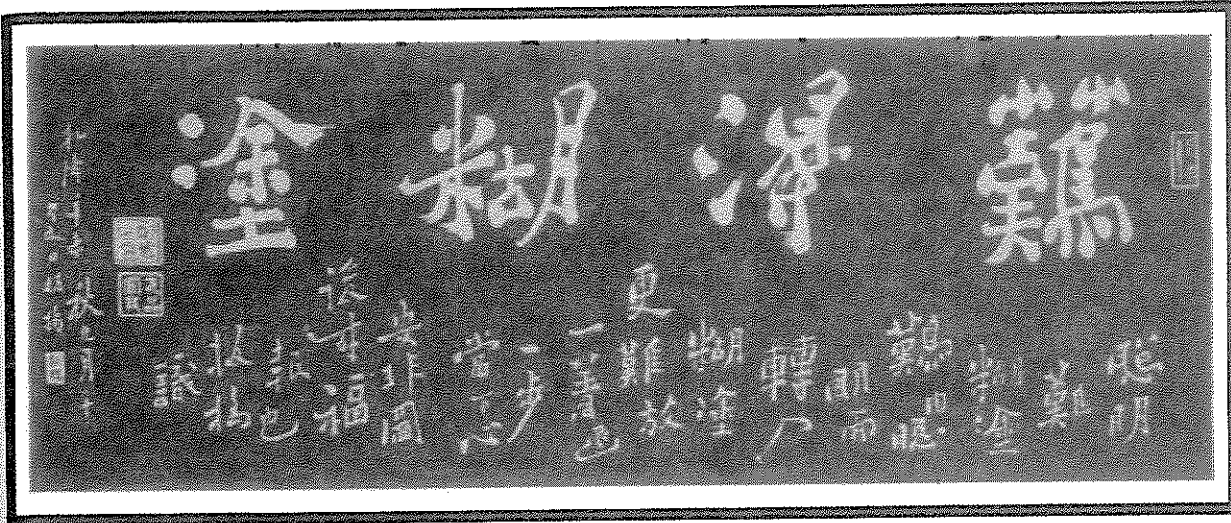 難得糊塗
聰明
難
糊塗
難由聰
明而
轉入
糊塗
更難放
一著退
一步
當下心
安非圖
後來福
報也
識